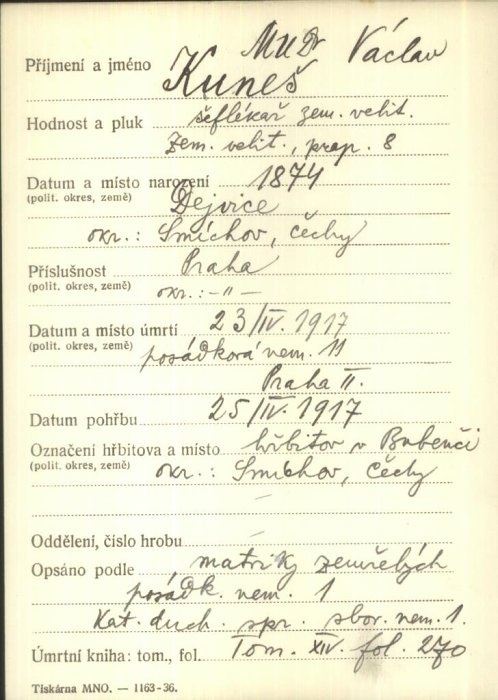 MUDr Václav
Příjmení a jméno Kuneš
Hodnost a pluk šéflékař zem. velit.
Zem. velit., prap. 8
Datum a místo narození 1874
(polit. okres, země) Dejvice
okr.: Smíchov, Čechy
Příslušnost Praha
(polit. okres, země) okr.: -"-
Datum a místo úmrtí 23/IV. 1917
(polit. okres, země) posádková nem. 11
Praha II.
Datum pohřbu 25/IV. 1917
Označení hřbitova a místo hřbitov v Bubenči
(polit. okres, země) okr.: Smíchov, Čechy
Oddělení, číslo hrobu
Opsáno podle matriky zemřelých
posádk. nem. 1
Kat. duch. spr. sbor. nem. 1.
Úmrtní kniha: tom., fol. Tom. XIV. fol. 270
Tiskárna MNO. — 1163-36.